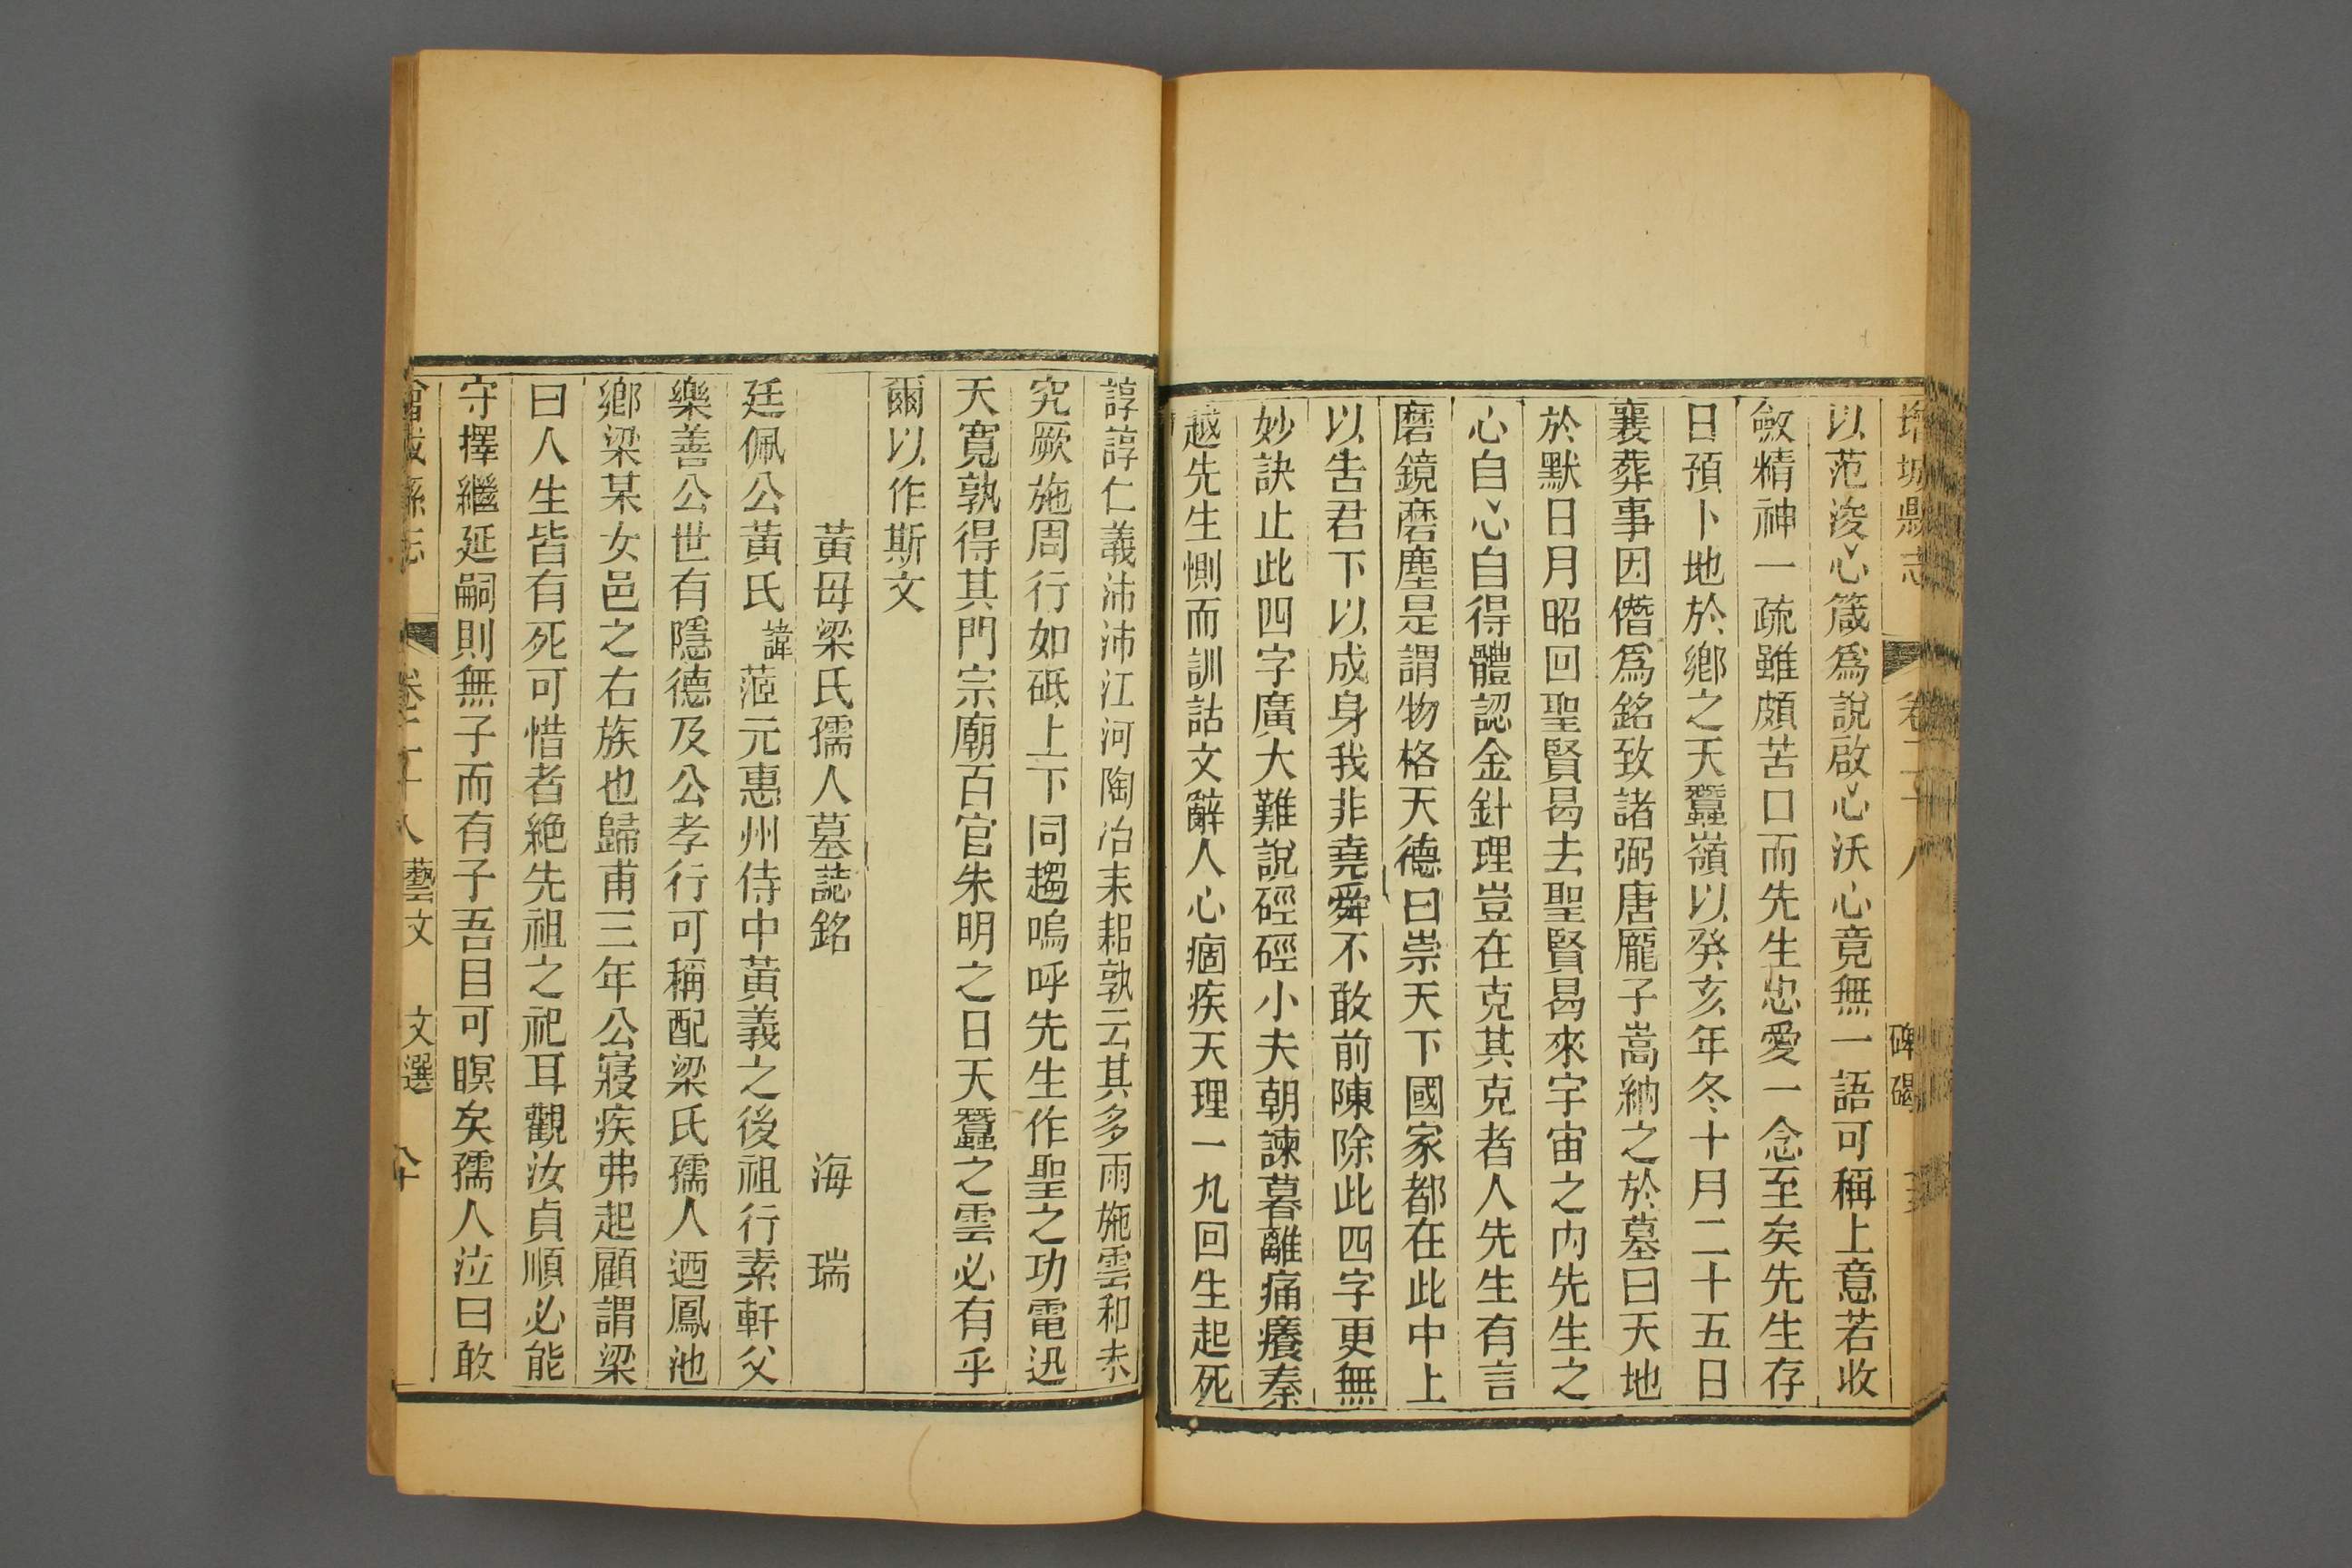 增城縣志 卷二十八 碑碣
以范浚心箴爲說啟心沃心竟無一語可稱上意若收
斂精神一疏雖頗苦口而先生忠愛一念至矣先生存
日預卜地於鄉之天蠶嶺以癸亥年冬十月二十五日
襄葬事因僭爲銘致諸弼唐龐子嵩納之於墓曰天地
於默日月昭回聖賢曷去聖賢曷來宇宙之內先生之
心自心自得體認金針理豈在克其克者人先生有言
磨鏡磨塵是謂物格天德曰崇天下國家都在此中上
以告君下以成身我非堯舜不敢前陳除此四字更無
妙訣止此四字廣大難說硜硜小夫朝諫暮離痛癢秦
越先生惻而訓詁文辭人心痼疾天理一九回生起死
諄諄仁義沛沛江河陶冶耒耜孰云其多雨施雲和未
究厥施周行如砥上下同趨嗚呼先生作聖之功電迅
天寬孰得其門宗廟百官朱明之日天蠶之雲必有乎
爾以作斯文
黃母梁氏孺人墓誌銘 海瑞
廷佩公黃氏諱蒞元惠州侍中黃義之後祖行素軒父
樂善公世有隱德及公孝行可稱配梁氏孺人迺鳳池
鄉梁某女邑之右族也歸甫三年公寢疾弗起顧謂梁
曰人生皆有死可惜者絕先祖之祀耳觀汝貞順必能
守擇繼延嗣則無子而有子吾目可瞑矣孺人泣曰敢
增城縣志 卷二十八 藝文 文選 八十